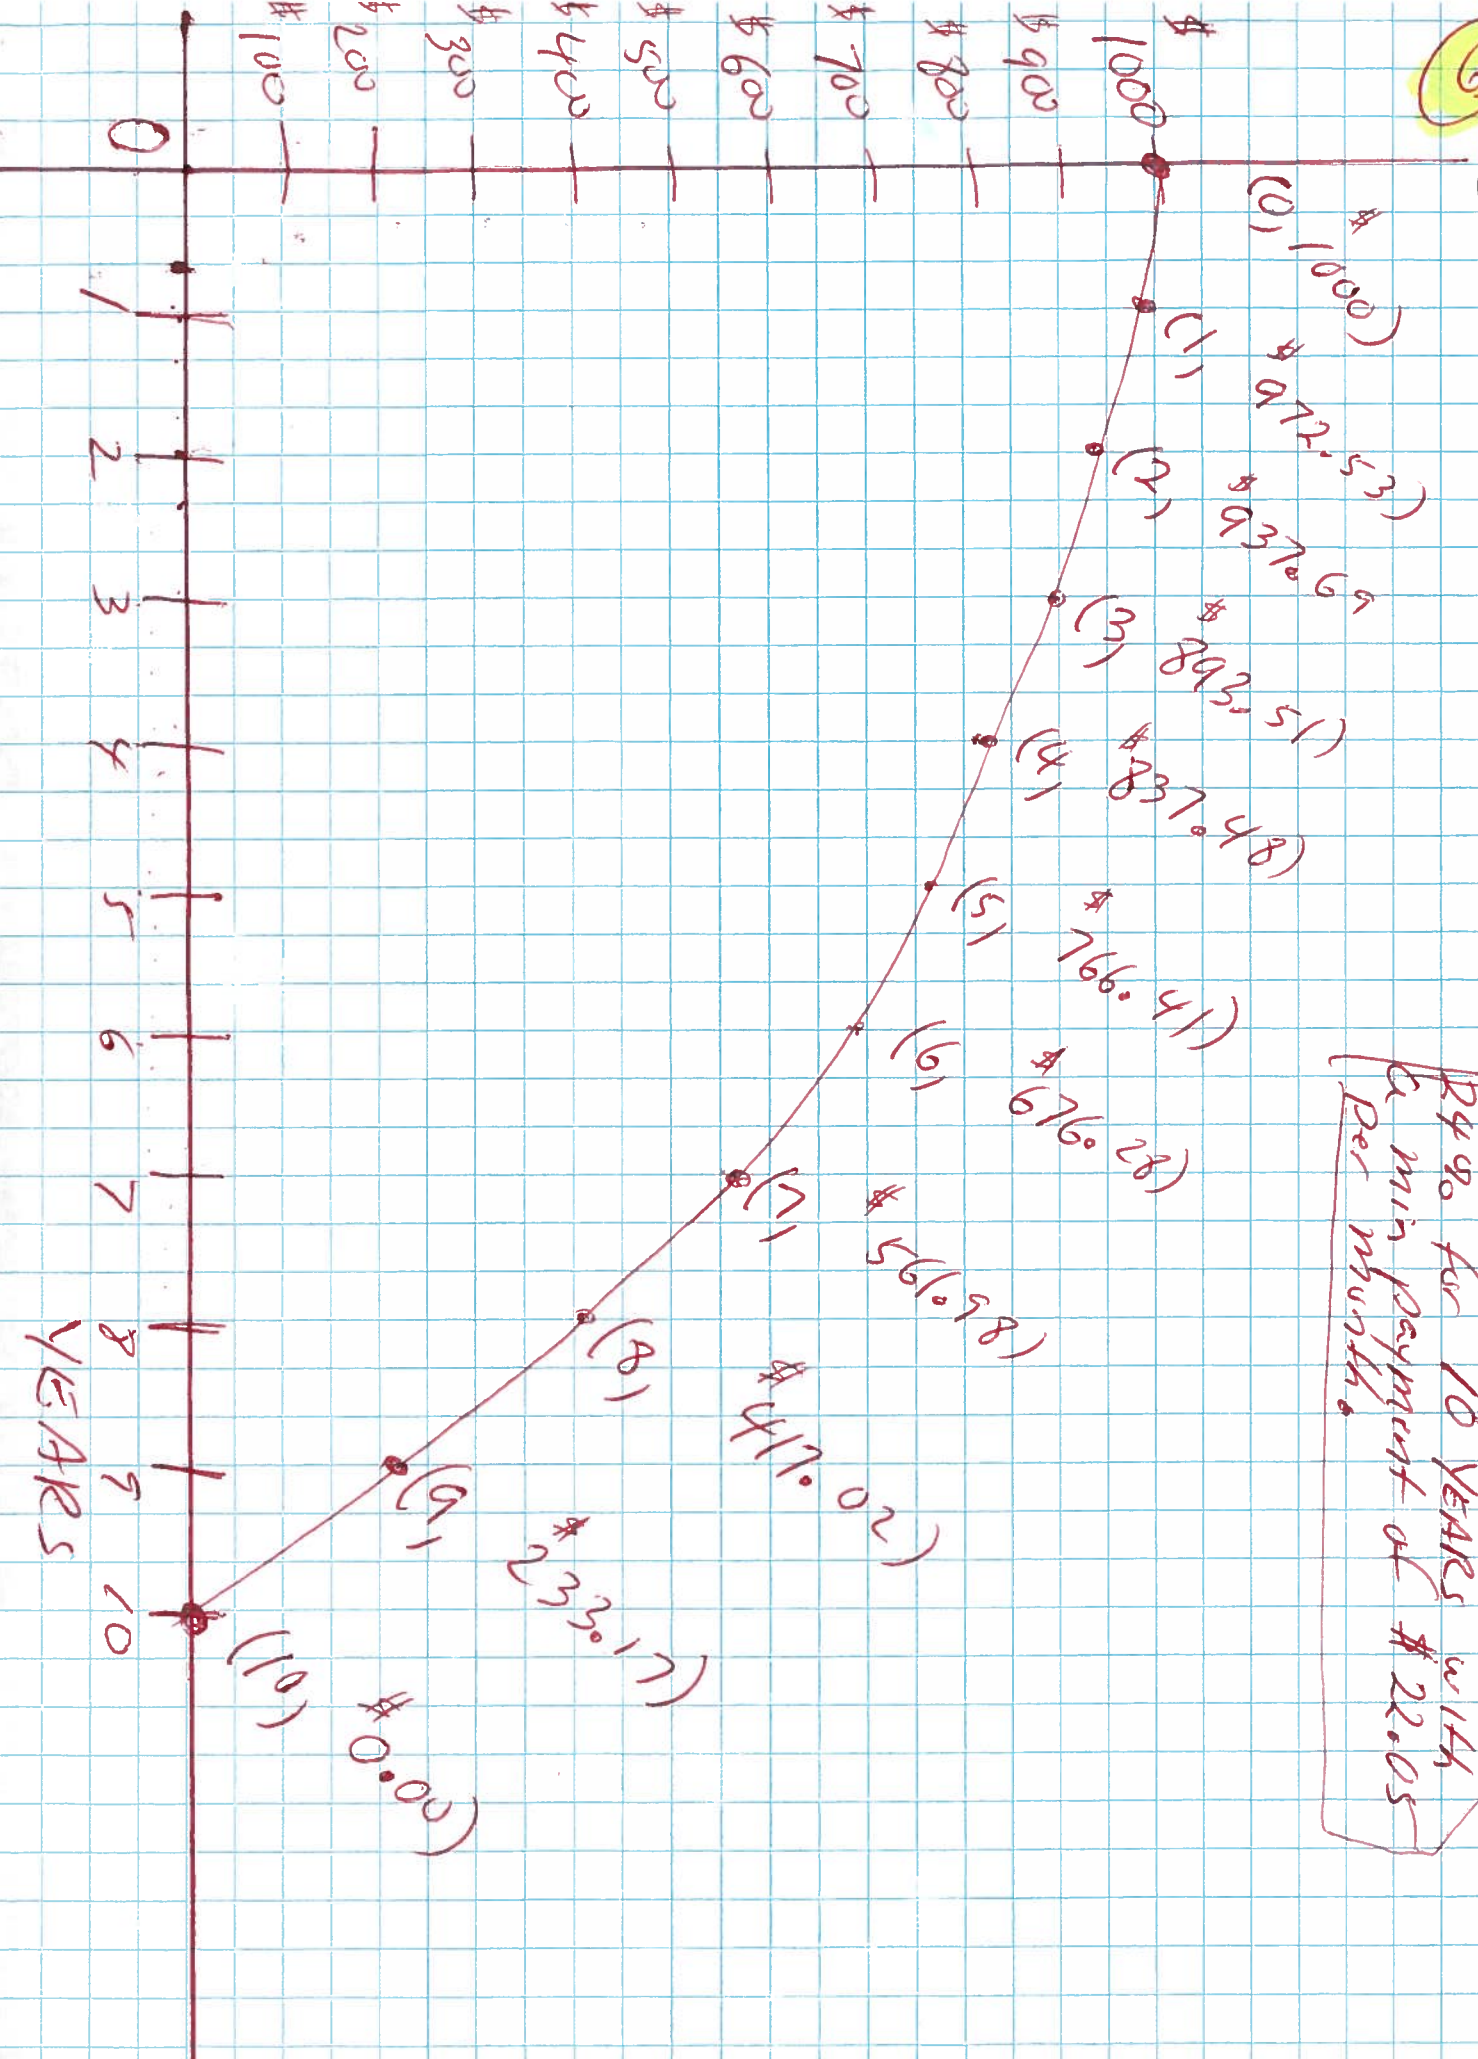 24% for 10 YEARS with
a min payment of $22.05
per month.
$
1000
$900
$800
$700
$600
$500
$400
$300
$200
$100
0
(0, $1000)
(1, $972.53)
(2, $937.69
(3, $893.51)
(4, $837.48)
(5, $766.41)
(6, $676.28)
(7, $561.98)
(8, $417.02)
(9, $233.17)
(10, $0.00)
1 2 3 4 5 6 7 8 9 10
YEARS